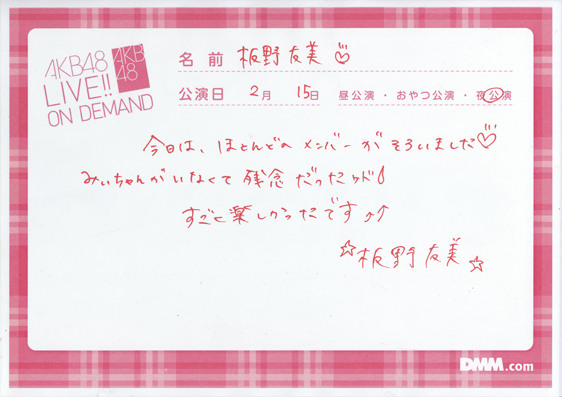 AKB48
LIVE!!
ON DEMAND
AKB
48
名前 板野友美♡
公演日 2月 15日 昼公演・おやつ公演・夜公演
今日は、ほとんどのメンバーがそろいました♡
みぃちゃんがいなくて残念だったケド
すごく楽しかったです↑↑
☆板野友美☆
DMM.com